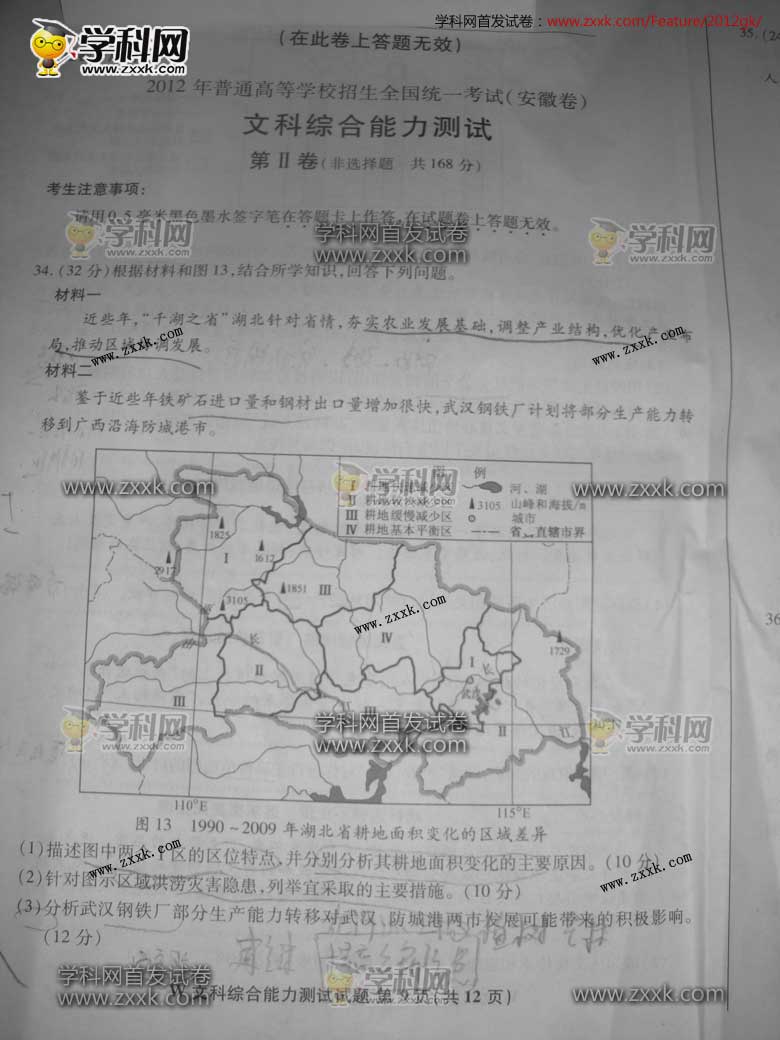 学科网首发试卷：www.zxxk.com/Feature/2012gk/
学科网
www.zxxk.com
（在此卷上答题无效）
35.
2012 年普通高等学校招生全国统一考试（安徽卷）
文科综合能力测试
第Ⅱ卷（非选择题 共 168 分）
考生注意事项：
请用 0.5 毫米黑色墨水签字笔在答题卡上作答，在试题卷上答题无效。
34.（32 分）根据材料和图 13，结合所学知识，回答下列问题。
材料一
近些年，“千湖之省”湖北针对省情，夯实农业发展基础，调整产业结构，优化产业布
局，推动区域协调发展。
材料二
鉴于近些年铁矿石进口量和钢材出口量增加很快，武汉钢铁厂计划将部分生产能力转
移到广西沿海防城港市。
图 例
Ⅰ 耕地
Ⅱ 耕地
Ⅲ 耕地缓慢减少区
Ⅳ 耕地基本平衡区
河、湖
3105 山峰和海拔/m
城市
省、直辖市界
1825
2917
1612
3105
1851
1729
Ⅰ
Ⅲ
Ⅳ
Ⅱ
Ⅲ
Ⅲ
Ⅰ
Ⅱ
Ⅱ
长
长
武汉
110°E
115°E
图 13 1990～2009 年湖北省耕地面积变化的区域差异
(1)描述图中两个Ⅰ区的区位特点，并分别分析其耕地面积变化的主要原因。（10 分）
(2)针对图示区域洪涝灾害隐患，列举宜采取的主要措施。（10 分）
(3)分析武汉钢铁厂部分生产能力转移对武汉、防城港两市发展可能带来的积极影响。
（12 分）
36
文科综合能力测试试题 第 9 页（共 12 页）
学科网首发试卷
www.zxxk.com
zxxk.com